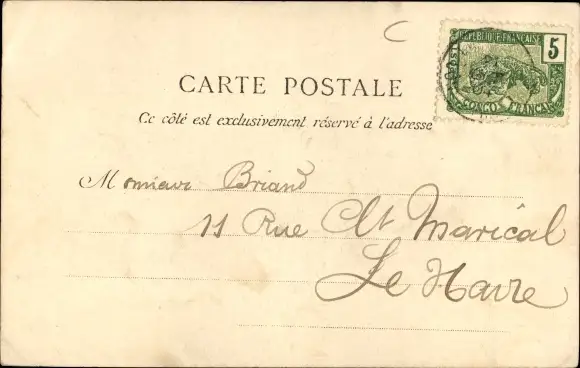 RÉPUBLIQUE FRANÇAISE
5
CONGO FRANÇAIS
CARTE POSTALE
Ce côté est exclusivement réservé à l'adresse
Monsieur Briand
11 Rue Clt Maricâl
Le Havre